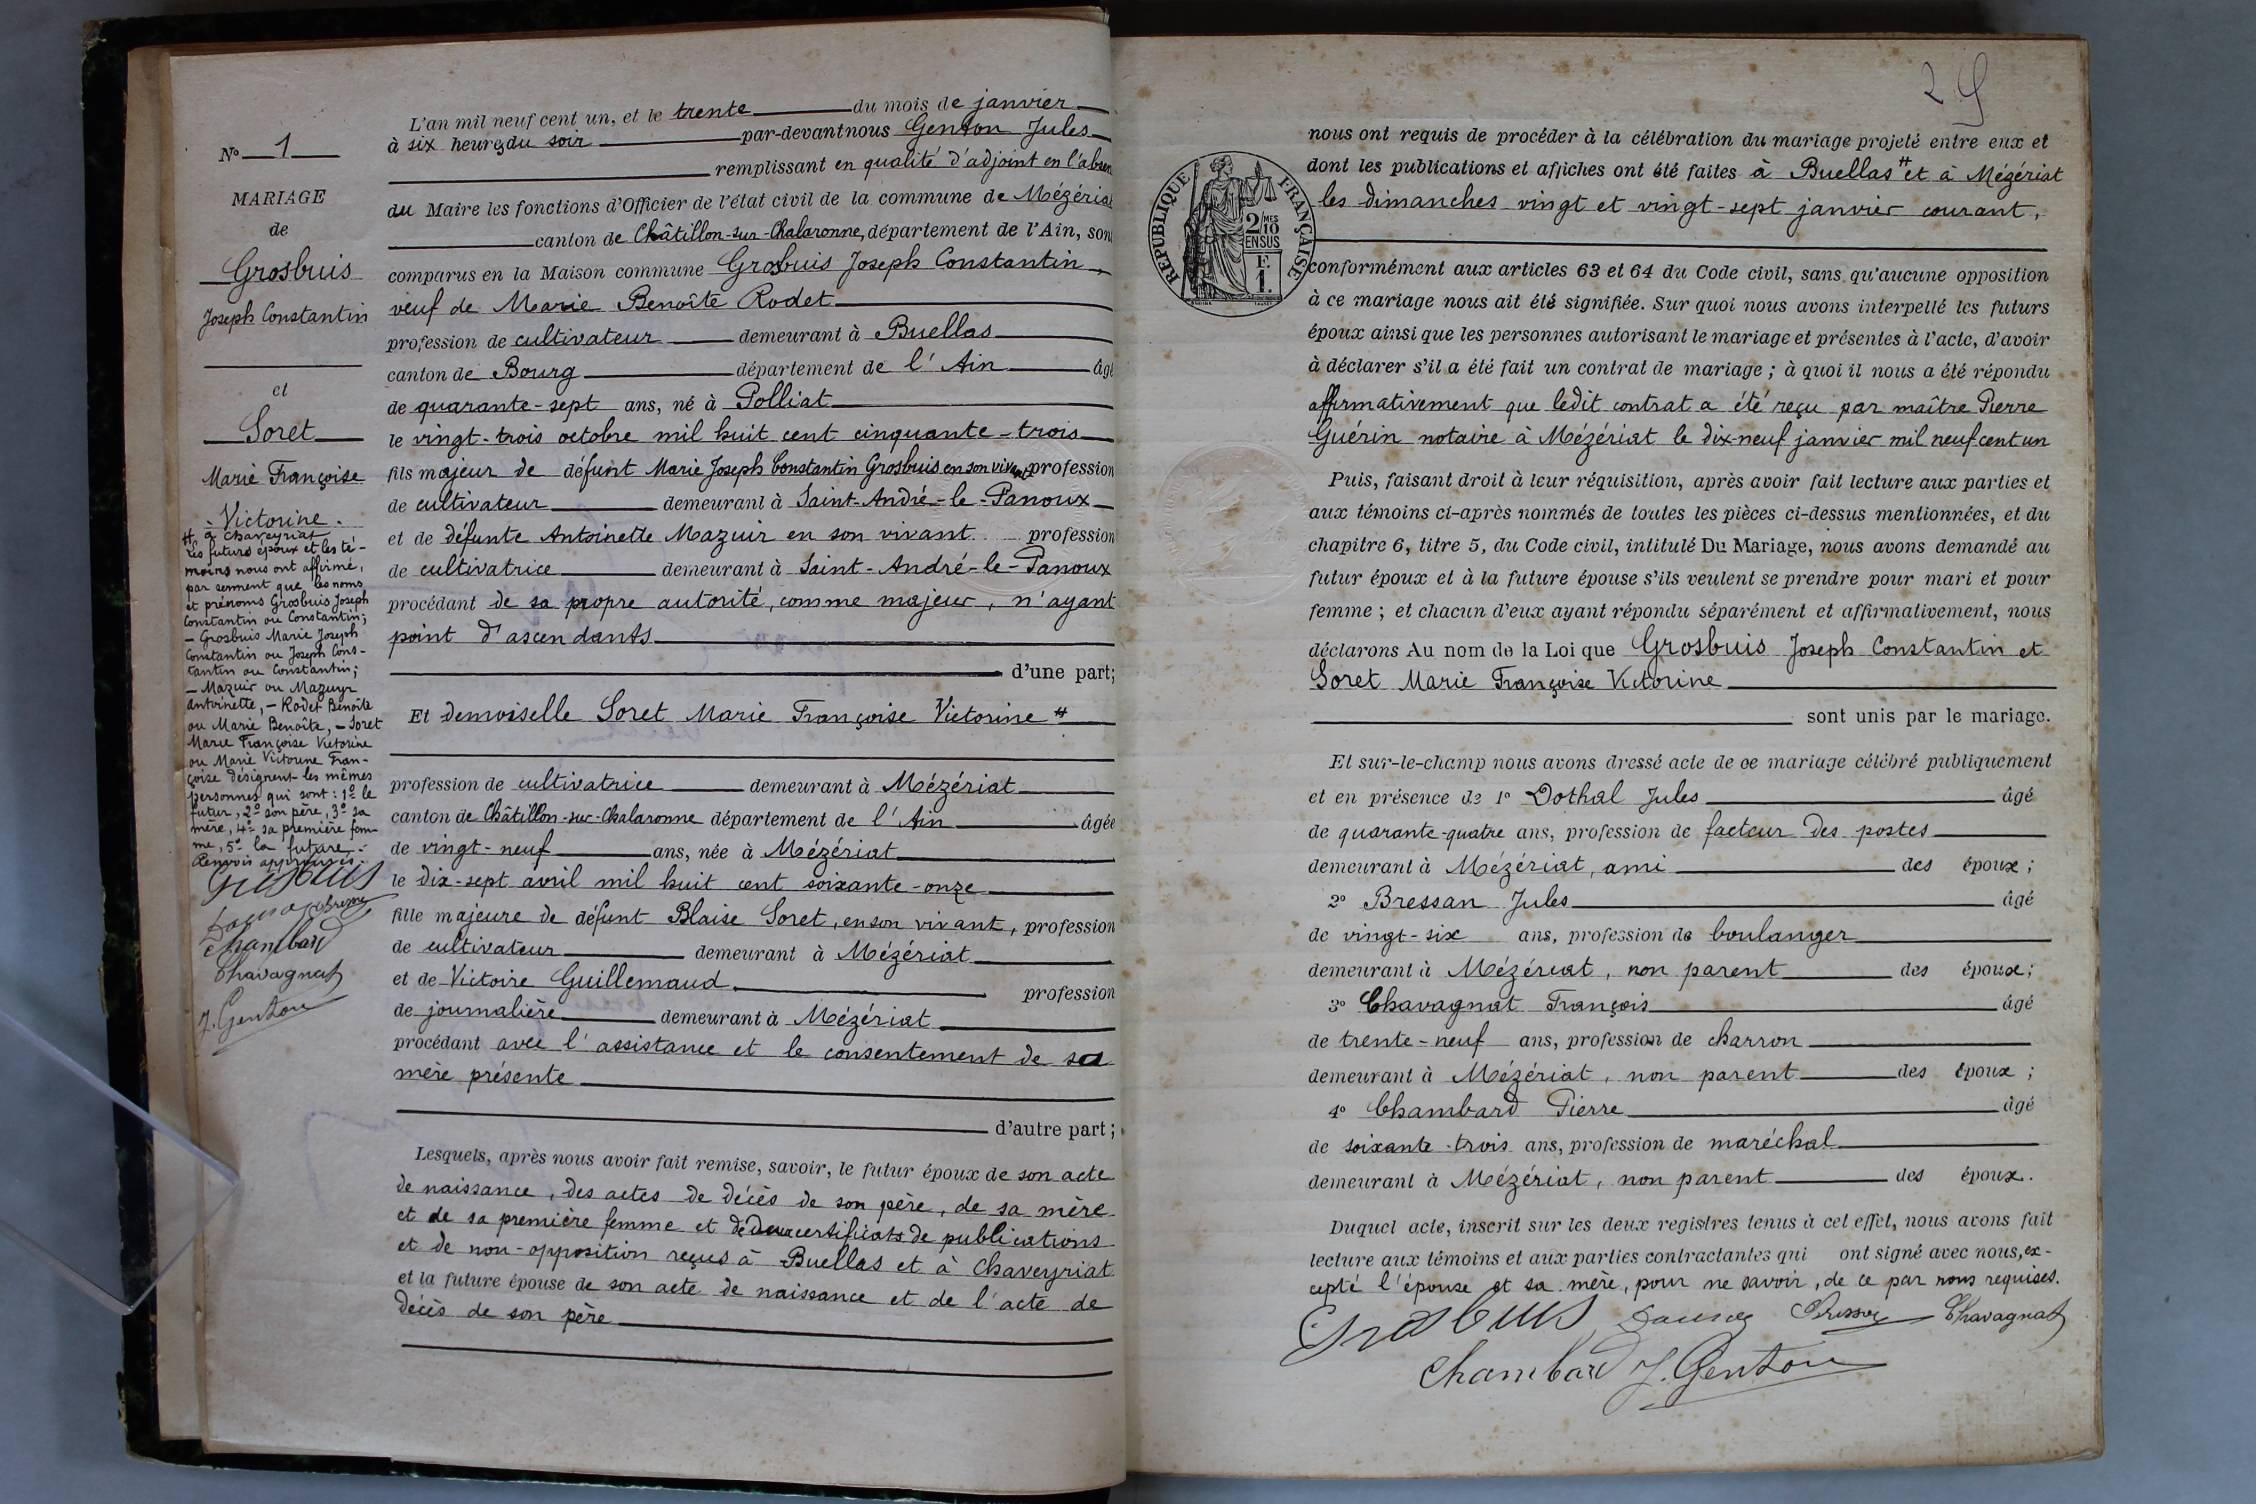 N° 1
MARIAGE
de
Grosbuis
Joseph Constantin
et
Soret
Marie Françoise
- Victorine -
# à Chaveyriat
Les futurs époux et les té-
moins nous ont affirmé,
par serment que les noms
et prénoms Grosbuis Joseph
Constantin ou Constantin;
- Grosbuis Marie Joseph
Constantin ou Joseph Cons-
tantin ou Constantin;
- Mazuir ou Mazuyr
Antoinette, - Rodet Benoîte
ou Marie Benoîte, - Soret
Marie Françoise Victorine
ou Marie Victorine Fran-
çoise désignent les mêmes
personnes qui sont : 1° le
futur, 2° son père, 3° sa
mère, 4° sa première fem-
me, 5° la future.
Renvois approuvés.
Grosbuis
Chambard
Chavagnat
J. Genton
L'an mil neuf cent un, et le trente du mois de janvier
à six heures du soir par-devant nous Genton Jules
remplissant en qualité d'adjoint en l'absen
du Maire les fonctions d'Officier de l'état civil de la commune de Mézériat
canton de Châtillon-sur-Chalaronne, département de l'Ain, sont
comparus en la Maison commune Grosbuis Joseph Constantin,
veuf de Marie Benoîte Rodet
profession de cultivateur demeurant à Buellas
canton de Bourg département de l'Ain âgé
de quarante-sept ans, né à Polliat
le vingt-trois octobre mil huit cent cinquante-trois
fils majeur de défunt Marie Joseph Constantin Grosbuis en son vivant profession
de cultivateur demeurant à Saint-André-le-Panoux
et de défunte Antoinette Mazuir en son vivant profession
de cultivatrice demeurant à Saint-André-le-Panoux
procédant de sa propre autorité, comme majeur, n'ayant
point d'ascendants
d'une part;
Et demoiselle Soret Marie Françoise Victorine #
profession de cultivatrice demeurant à Mézériat
canton de Châtillon-sur-Chalaronne département de l'Ain âgée
de vingt-neuf ans, née à Mézériat
le dix-sept avril mil huit cent soixante-onze
fille majeure de défunt Blaise Soret, en son vivant, profession
de cultivateur demeurant à Mézériat
et de Victoire Guillemaud profession
de journalière demeurant à Mézériat
procédant avec l'assistance et le consentement de sa
mère présente
d'autre part;
Lesquels, après nous avoir fait remise, savoir, le futur époux de son acte
de naissance, des actes de décès de son père, de sa mère
et de sa première femme et de deux certificats de publications
et de non-opposition reçus à Buellas et à Chaveyriat
et la future épouse de son acte de naissance et de l'acte de
décès de son père
RÉPUBLIQUE FRANÇAISE
2/10 MES
EN SUS
F.
1.
nous ont requis de procéder à la célébration du mariage projeté entre eux et
dont les publications et affiches ont été faites à Buellas # et à Mézériat
les dimanches vingt et vingt-sept janvier courant,
conformément aux articles 63 et 64 du Code civil, sans qu'aucune opposition
à ce mariage nous ait été signifiée. Sur quoi nous avons interpellé les futurs
époux ainsi que les personnes autorisant le mariage et présentes à l'acte, d'avoir
à déclarer s'il a été fait un contrat de mariage ; à quoi il nous a été répondu
affirmativement que ledit contrat a été reçu par maître Pierre
Guérin notaire à Mézériat le dix-neuf janvier mil neuf cent un
Puis, faisant droit à leur réquisition, après avoir fait lecture aux parties et
aux témoins ci-après nommés de toutes les pièces ci-dessus mentionnées, et du
chapitre 6, titre 5, du Code civil, intitulé Du Mariage, nous avons demandé au
futur époux et à la future épouse s'ils veulent se prendre pour mari et pour
femme ; et chacun d'eux ayant répondu séparément et affirmativement, nous
déclarons Au nom de la Loi que Grosbuis Joseph Constantin et
Soret Marie Françoise Victorine
sont unis par le mariage.
Et sur-le-champ nous avons dressé acte de ce mariage célébré publiquement
et en présence de 1° Dothal Jules âgé
de quarante-quatre ans, profession de facteur des postes
demeurant à Mézériat, ami des époux;
2° Bressan Jules âgé
de vingt-six ans, profession de boulanger
demeurant à Mézériat, non parent des époux;
3° Chavagnat François âgé
de trente-neuf ans, profession de charron
demeurant à Mézériat, non parent des époux ;
4° Chambard Pierre âgé
de soixante-trois ans, profession de maréchal
demeurant à Mézériat, non parent des époux.
Duquel acte, inscrit sur les deux registres tenus à cet effet, nous avons fait
lecture aux témoins et aux parties contractantes qui ont signé avec nous, ex-
cepté l'épouse et sa mère, pour ne savoir, de ce par nous requises.
Grosbuis Chavagnat
Chambard J. Genton